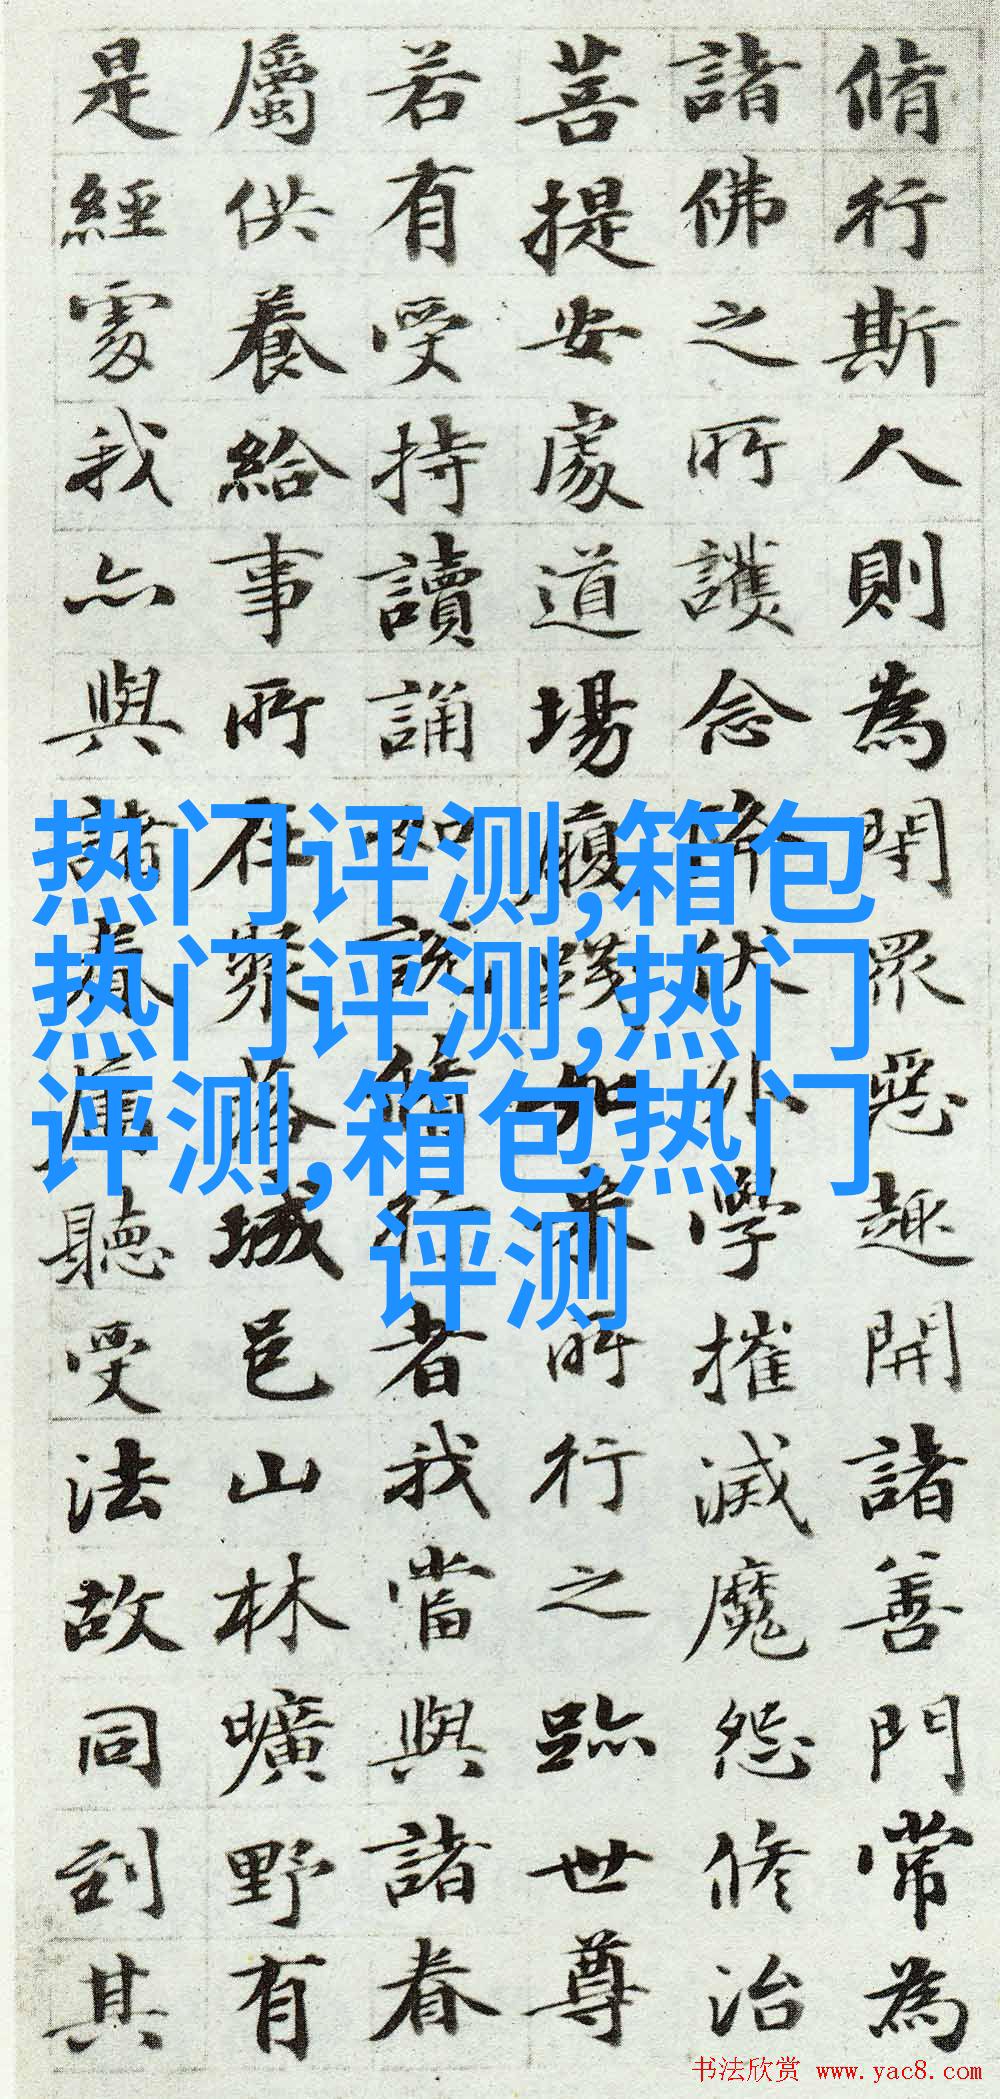 脩行斯人則為閇眾惡趣開諸善門常為
諸佛之所護念降伏外學摧滅魔怨修治
菩提安處道場履踐如來所行之跡世尊
若有受持讀誦如說脩行者我當與諸眷
屬供養給事所在聚落城邑山林曠野有
是經處我亦與諸眷屬聽受法故同到其
热门评测,箱包
热门评测,热门
评测,箱包热门
评测
书法欣赏 www.yac8.com